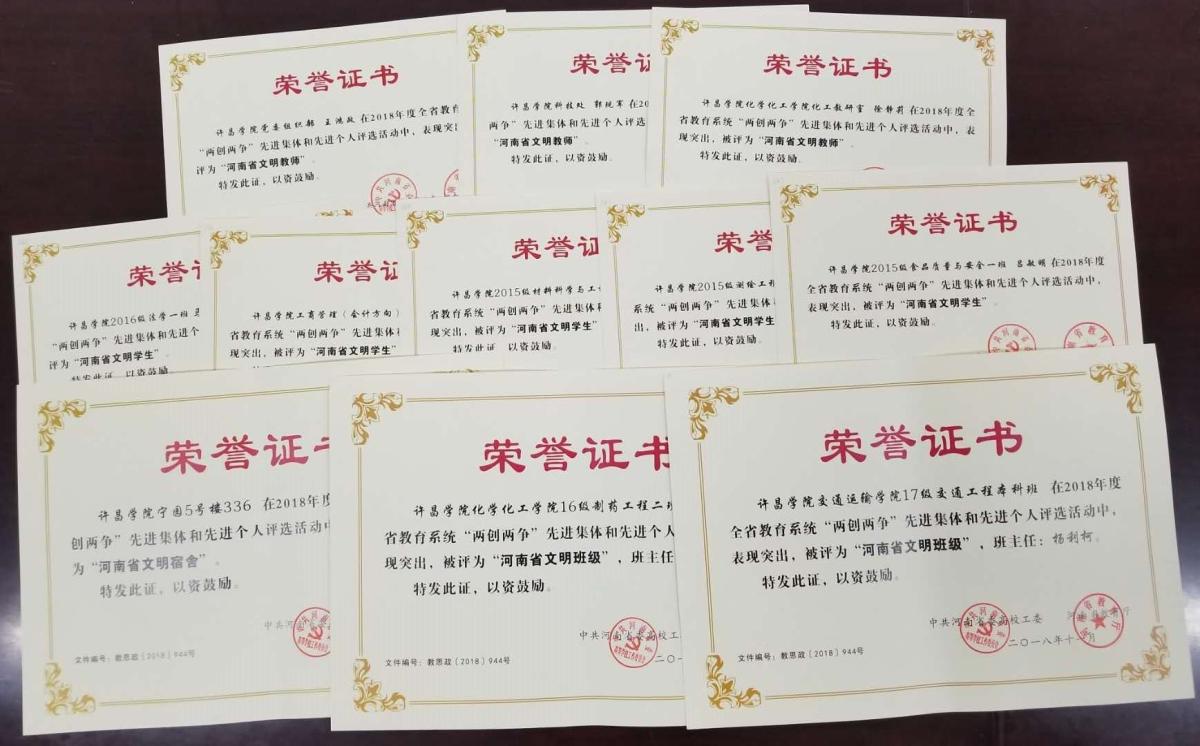 荣誉证书
许昌学院党委组织部 王鸿政 在2018年度全省教育
“两创两争”先进集体和先进个人评选活动中，表现突出
评为“河南省文明教师”。
特发此证，以资鼓励。
荣誉证
许昌学院科技处 郭现军 在20
两争”先进集体和先进个
河南省文明教师”。
特发此证，以资鼓励。
荣誉证书
许昌学院化学化工学院化工教研室 徐静莉 在2018年度全
省教育系统“两创两争”先进集体和先进个人评选活动中，表
现突出，被评为“河南省文明教师”。
特发此证，以资鼓励。
荣誉
许昌学院2016级法学一班
“两创两争”先进集体和先进个
评为“河南省文明学生”。
特发此证，以资鼓励
荣誉证
许昌学院工商管理（会计方向）
省教育系统“两创两争”先进集体
现突出，被评为“河南省文明学生”
特发此证，以资鼓励。
荣誉证
许昌学院2015级材料科学与工
省教育系统“两创两争”先进集体和
现突出，被评为“河南省文明学生”
特发此证，以资鼓励。
荣誉
许昌学院2015级测绘工程
系统“两创两争”先进集体
出，被评为“河南省文明学生
特发此证，以资鼓励。
荣誉证书
许昌学院2015级食品质量与安全一班 吕敏明 在2018年度
全省教育系统“两创两争”先进集体和先进个人评选活动中，
表现突出，被评为“河南省文明学生”。
特发此证，以资鼓励。
荣誉证
许昌学院宁园5号楼336 在2018年度
创两争”先进集体和先进个人评选活动中
为“河南省文明宿舍”。
特发此证，以资鼓励。
中共河南省委
文件编号：教思政〔2018〕944号
荣誉证书
许昌学院化学化工学院16级制药工程二班
省教育系统“两创两争”先进集体和先进个人
现突出，被评为“河南省文明班级”，班主任：
特发此证，以资鼓励。
中共河南省委高校工
二〇一
文件编号：教思政〔2018〕944号
荣誉证书
许昌学院交通运输学院17级交通工程本科班 在2018年度
全省教育系统“两创两争”先进集体和先进个人评选活动中，
表现突出，被评为“河南省文明班级”，班主任：杨利柯。
特发此证，以资鼓励。
中共河南省委高校工委 河南省教育厅
二〇一八年十二月
文件编号：教思政〔2018〕944号